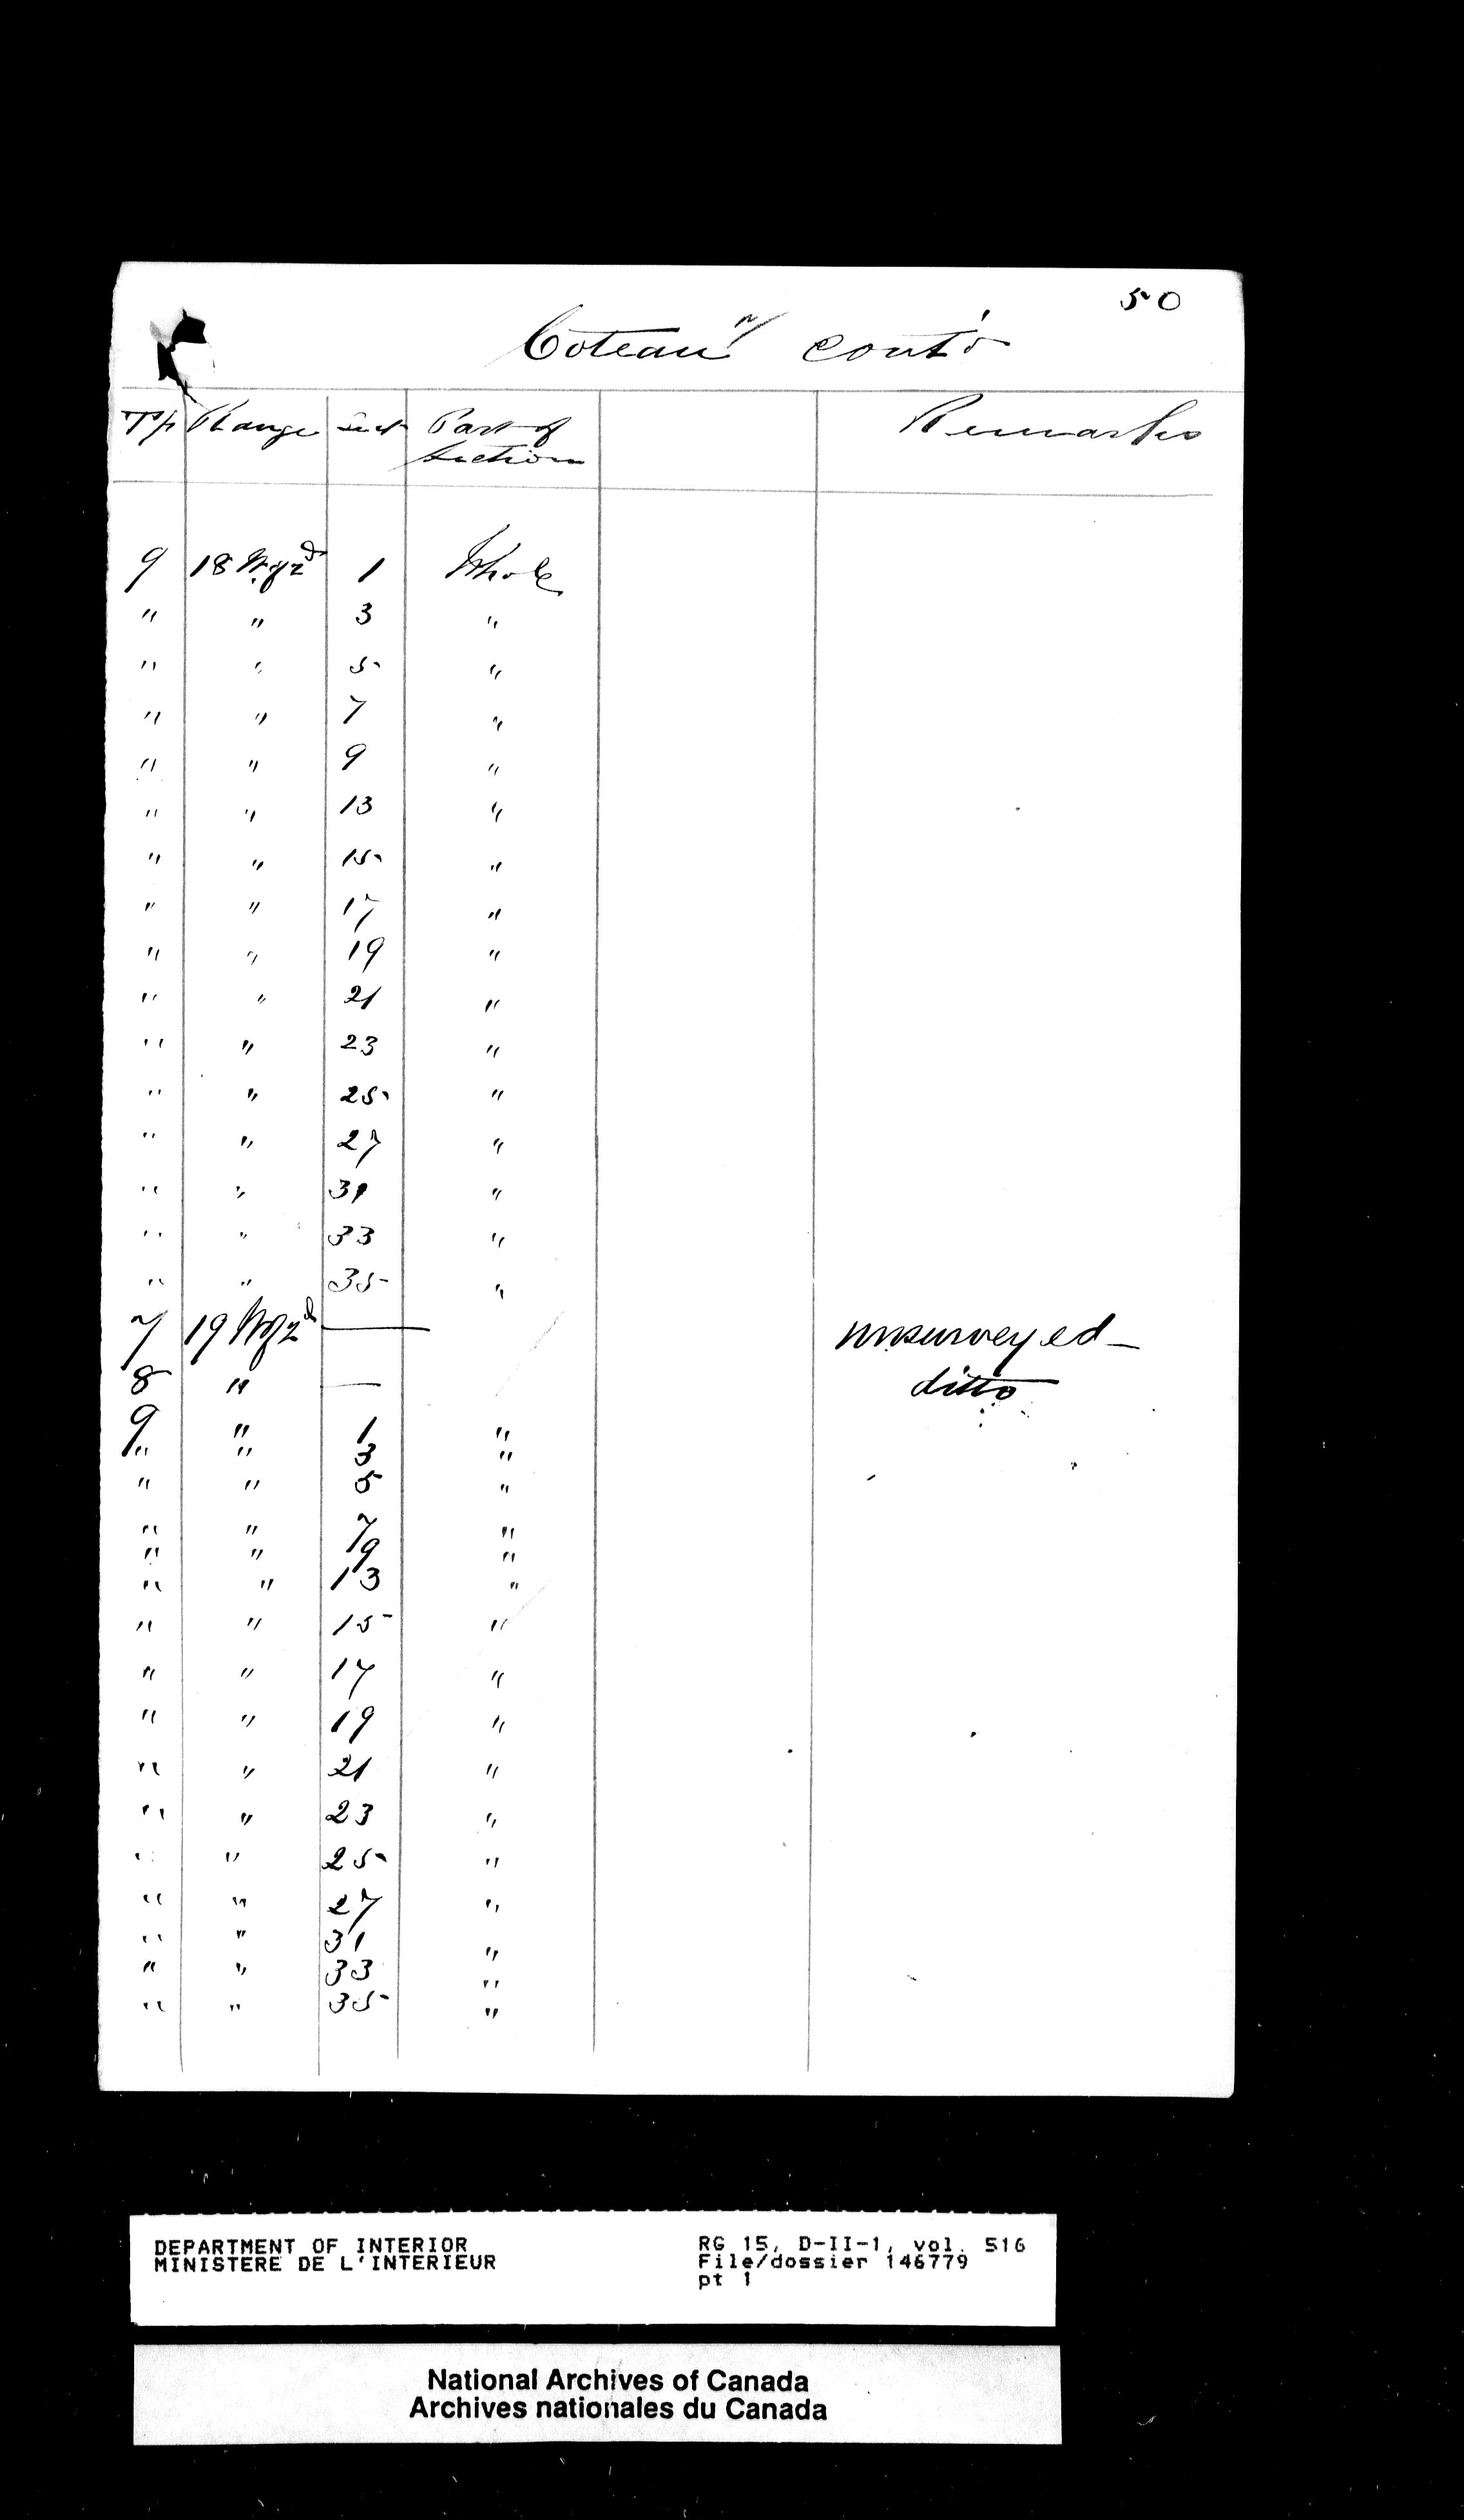 50
Coteau" cont'd
Tp Range Sect Part of Section Remarks
9 18 W of 2d 1 Whole
" " 3 "
" " 5 "
" " 7 "
" " 9 "
" " 13 "
" " 15 "
" " 17 "
" " 19 "
" " 21 "
" " 23 "
" " 25 "
" " 27 "
" " 31 "
" " 33 "
" " 35 "
7 19 W of 2d — unsurveyed —
8 " — ditto
9 " 1 "
" " 3 "
" " 5 "
" " 7 "
" " 9 "
" " 13 "
" " 15 "
" " 17 "
" " 19 "
" " 21 "
" " 23 "
" " 25 "
" " 27 "
" " 31 "
" " 33 "
" " 35 "
DEPARTMENT OF INTERIOR RG 15, D-II-1, vol. 516
MINISTERE DE L'INTERIEUR File/dossier 146779
pt 1
National Archives of Canada
Archives nationales du Canada